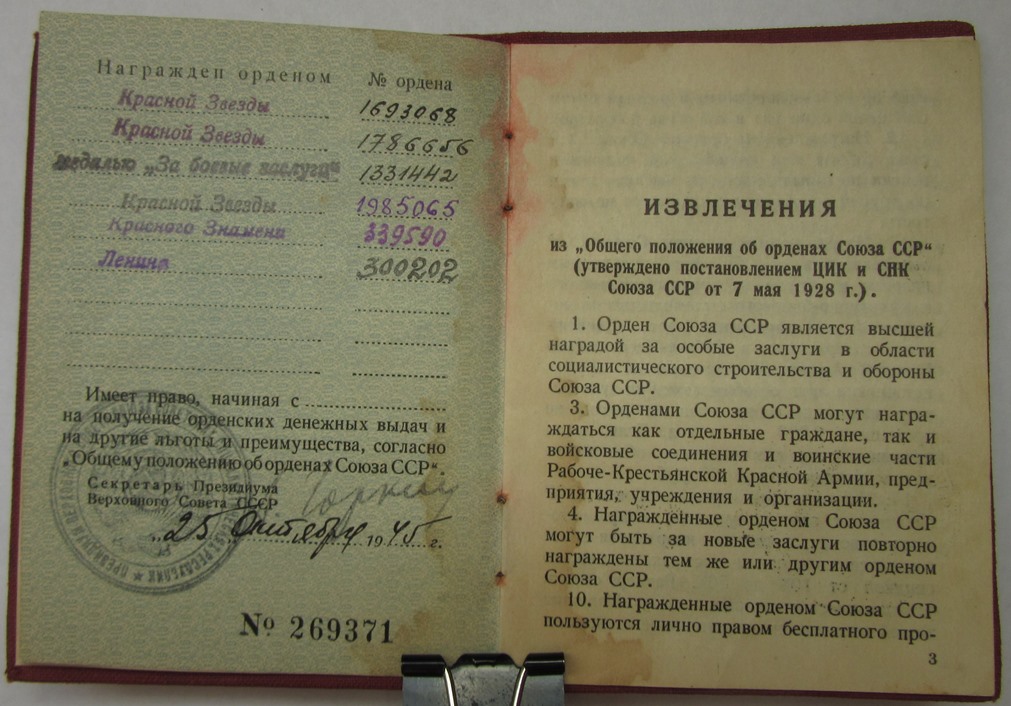 Награжден орденом № ордена
Красной Звезды 1693068
Красной Звезды 1786656
медалью „За боевые заслуги“ 1331442
Красной Звезды 1985065
Красного Знамени 339590
Ленина 300202
Имеет право, начиная с
на получение орденских денежных выдач и
на другие льготы и преимущества, согласно
„Общему положению об орденах Союза ССР“.
Секретарь Президиума
Верховного Совета СССР
Горкин
„25 Октября 1945 г.
№ 269371
ИЗВЛЕЧЕНИЯ
из „Общего положения об орденах Союза ССР“
(утверждено постановлением ЦИК и СНК
Союза ССР от 7 мая 1928 г.).
1. Орден Союза ССР является высшей
наградой за особые заслуги в области
социалистического строительства и обороны
Союза ССР.
3. Орденами Союза ССР могут награ-
ждаться как отдельные граждане, так и
войсковые соединения и воинские части
Рабоче-Крестьянской Красной Армии, пред-
приятия, учреждения и организации.
4. Награжденные орденом Союза ССР
могут быть за новые заслуги повторно
награждены тем же или другим орденом
Союза ССР.
10. Награжденные орденом Союза ССР
пользуются лично правом бесплатного про-
3